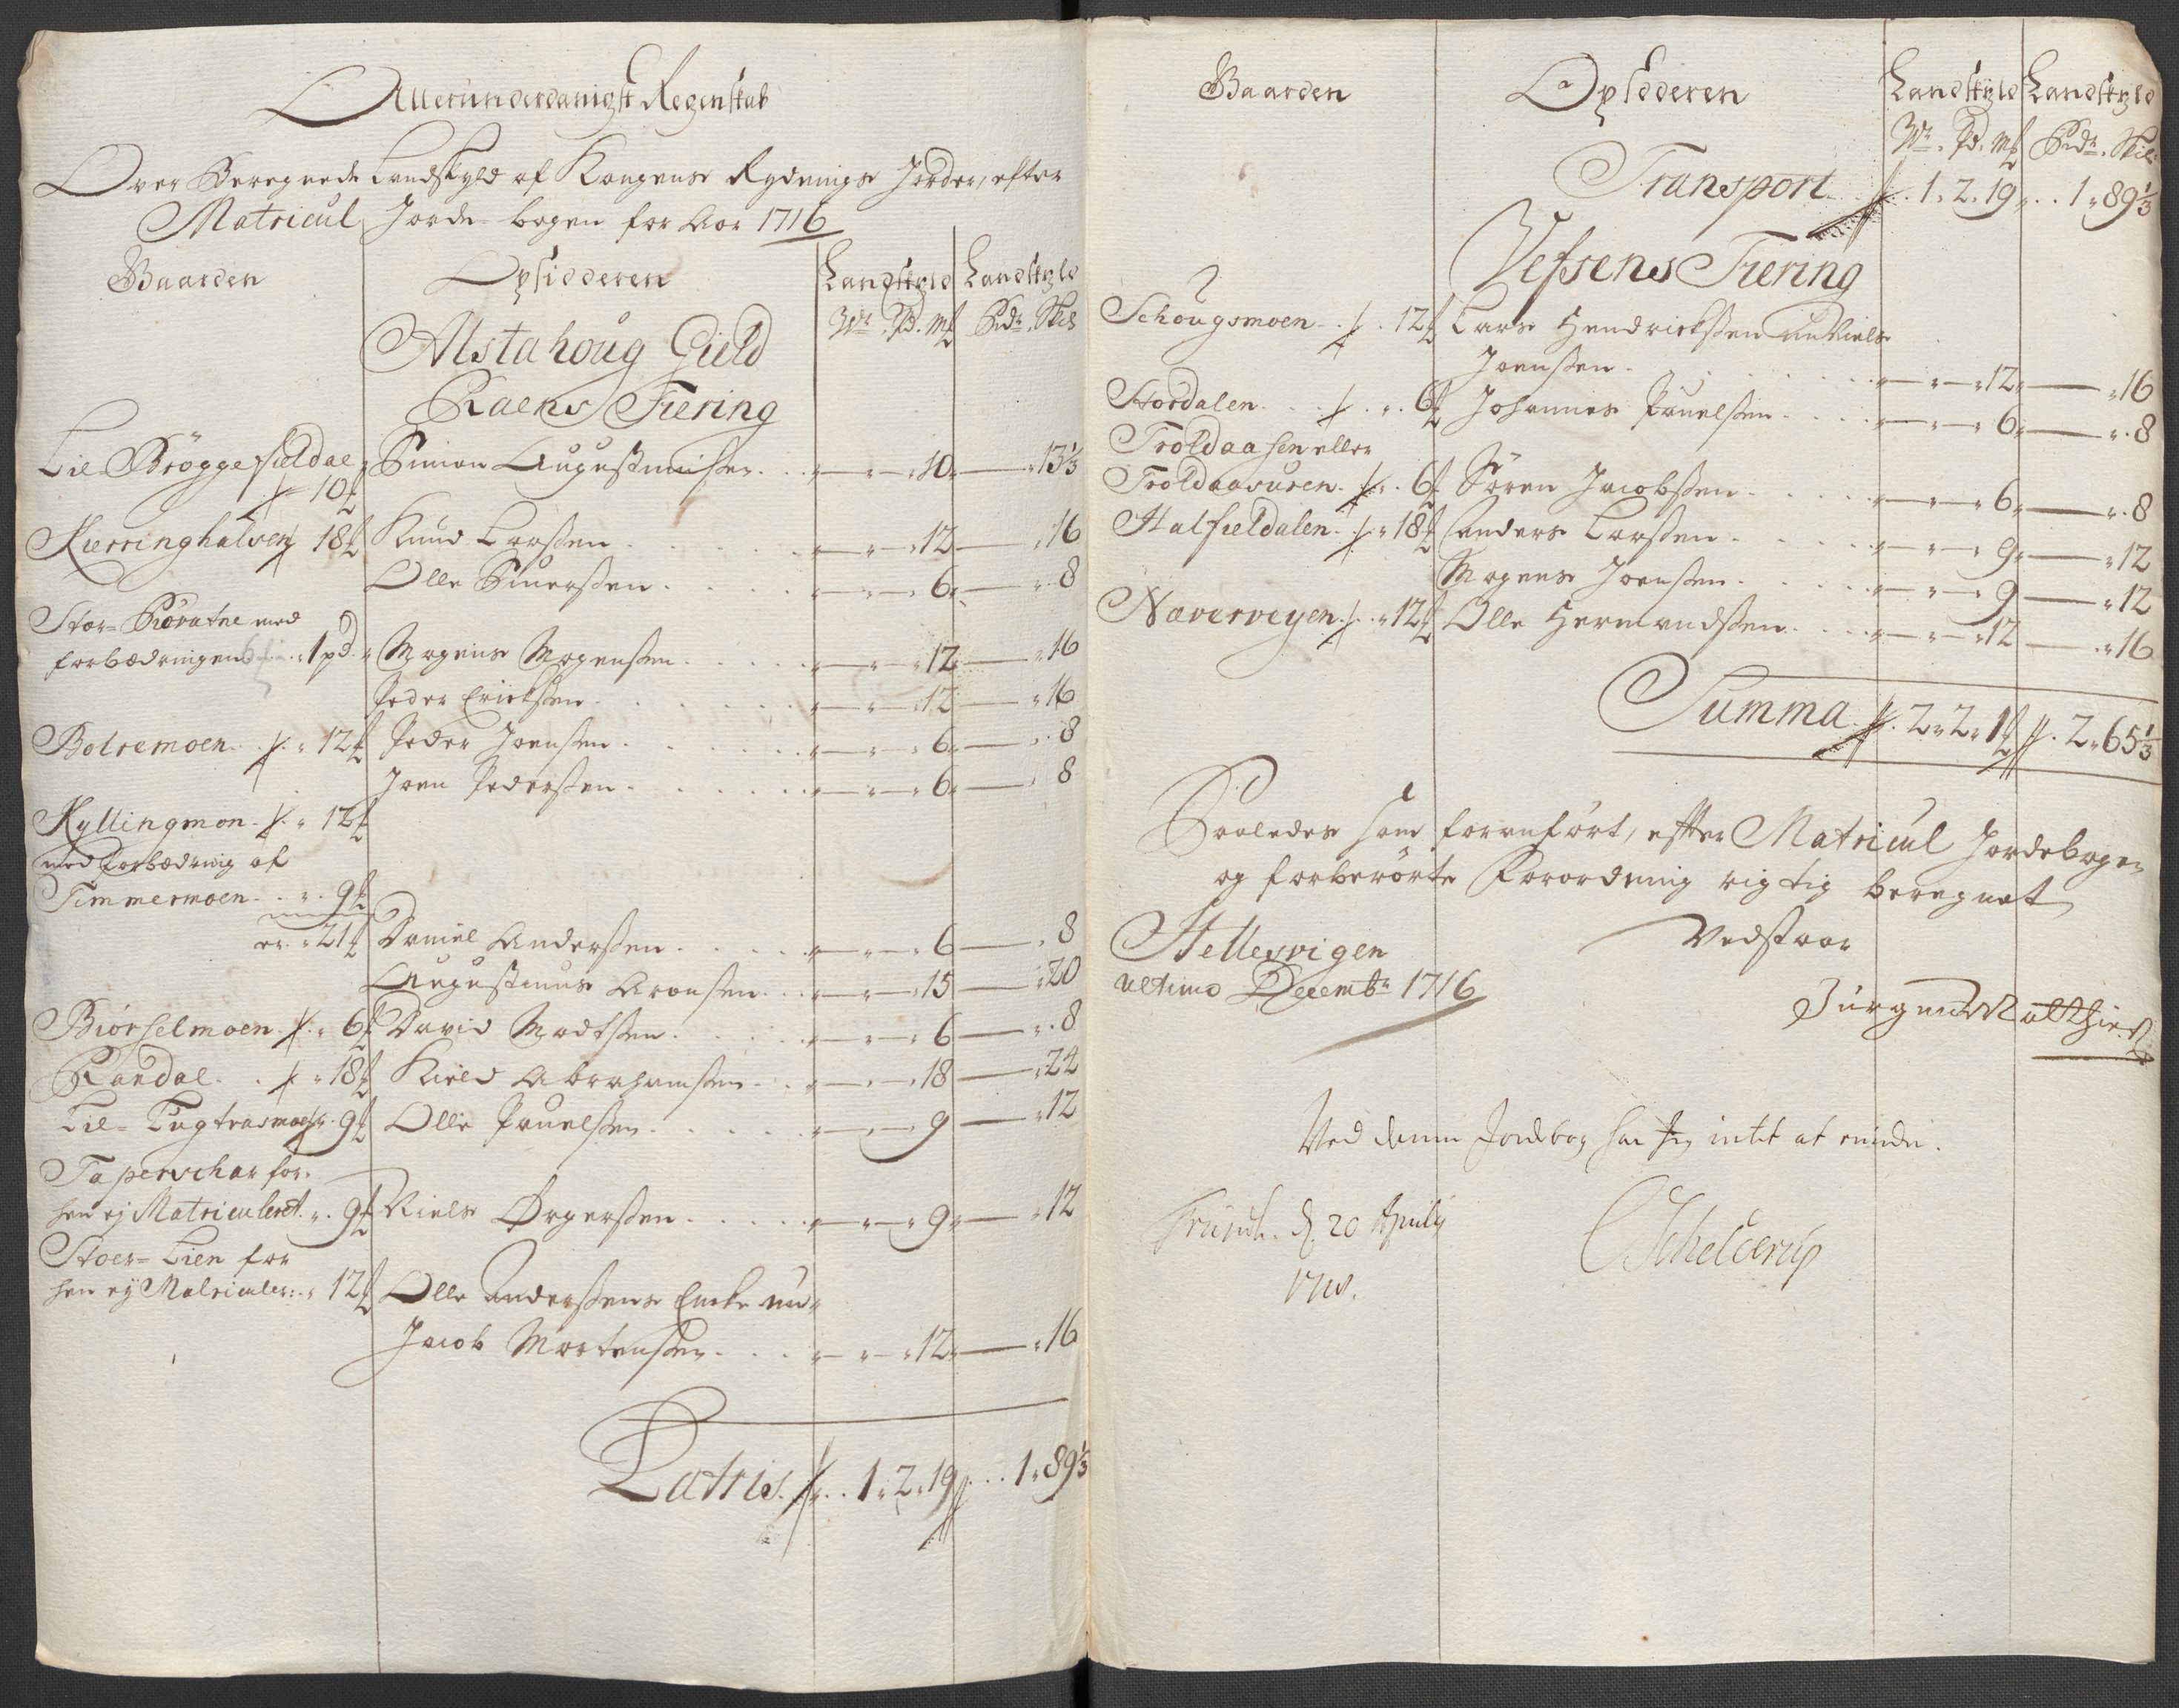 Allerunderdanigst Regenskab
Over Beregnede Landskyld af Kongens Rydnings Jorder, efter
Matricul Jorde-bogen for Aar 1716
Gaarden Opsidderen Landskyld Landskyld
Wr. Pd. mk Rdr. Skil
Alstahoug Gield
Raens Fiering
Lie Brøggefieldae Simon Augustinusen 10 13⅓
10
Kierringhalsen 18 Knud Larssen 12 16
Olle Siuerssen 6 8
Stor- Røvatne med
forbædringen 1 pd. Mogens Mogenssen 12 16
Peder Erichssen 12 16
Bolremoen 12 Peder Joenssen 6 8
Joen Pederssen 6 8
Kyllingmon 12
med forbædring af
Timmermoen 9
er 21 Daniel Anderssen 6 8
Augustinus Aronssen 15 20
Biørselmoen 6 David Madtssen 6 8
Randal 18 Kield Abrahamssen 18 24
Lil- Tugtrasmoe 9 Olle Pauelssen 9 12
Taperschar for-
hen ej Matriculeret 9 Niels Ørgerssen 9 12
Stoer- Lien for
hen ej Matriculer: 12 Olle Anderssens Encke nu
Jacob Mortenssen 12 16
Latris 1. 2. 19 1. 89⅓
Gaarden Opsidderen Landskyld Landskyld
Wr. Pd. mk Rdr. Skil.
Transport 1. 2. 19 1. 89⅓
Vefsens Fiering
Schougsmoen 12 Lars Hendrichssen nu Niels
Joenssen 12 16
Stordalen 6 Johannes Pauelssen 6 8
Troldaasen eller
Troldaavuren 6 Søren Jacobssen 6 8
Halfieldalen 18 Anders Larssen 9 12
Mogens Joenssen 9 12
Næverveyen 12 Olle Hermandssen 12 16
Summa 2. 2. 1 2. 65⅓
Saaledes som foranført, efter Matricul Jordebogen
og forberørte Forordning rigtig beregnet
Vedstaar
Stellesvigen
ultimo Decembr 1716
Jürgen Matthies
Ved denne Jordbog har Jeg intet at erindre.
Trundh. d. 20 Aprilij
1718.
Schelderup